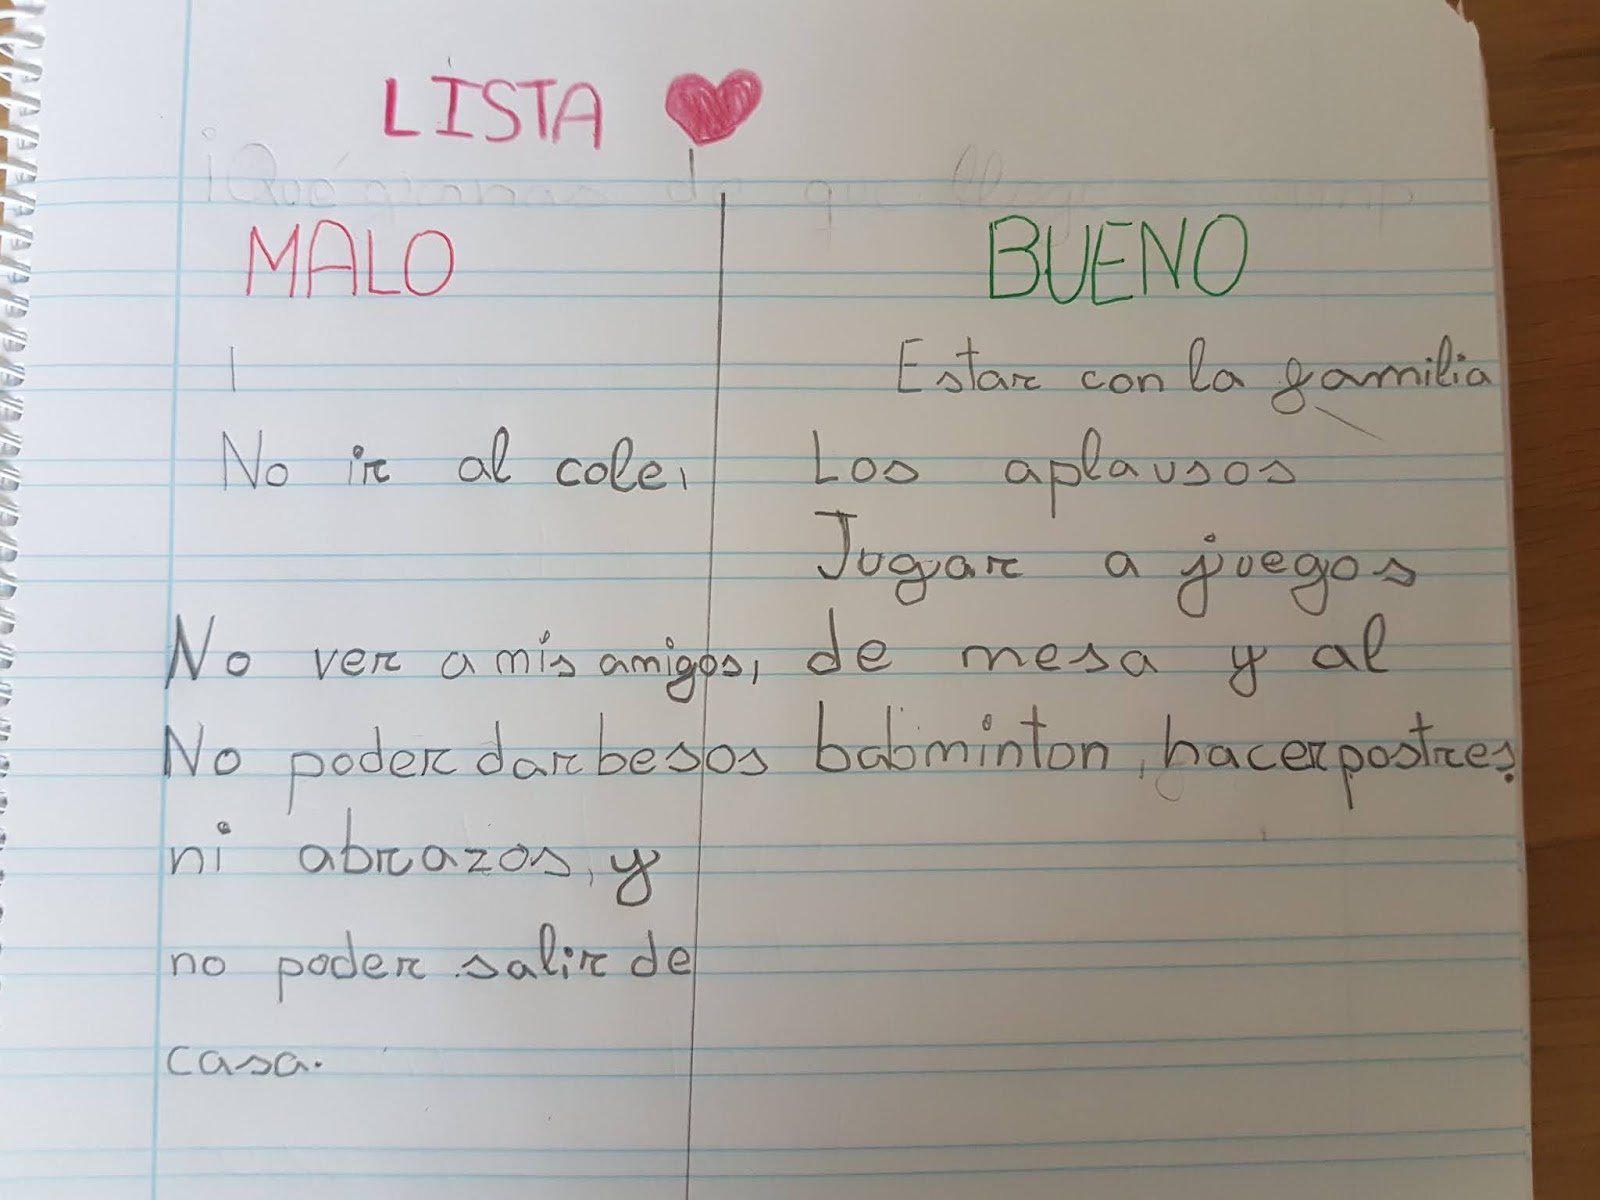 LISTA
MALO
No ir al cole,
No ver a mis amigos,
No poder dar besos
ni abrazos, y
no poder salir de
casa.
BUENO
Estar con la familia
Los aplausos
Jugar a juegos
de mesa y al
babminton, hacer postres.